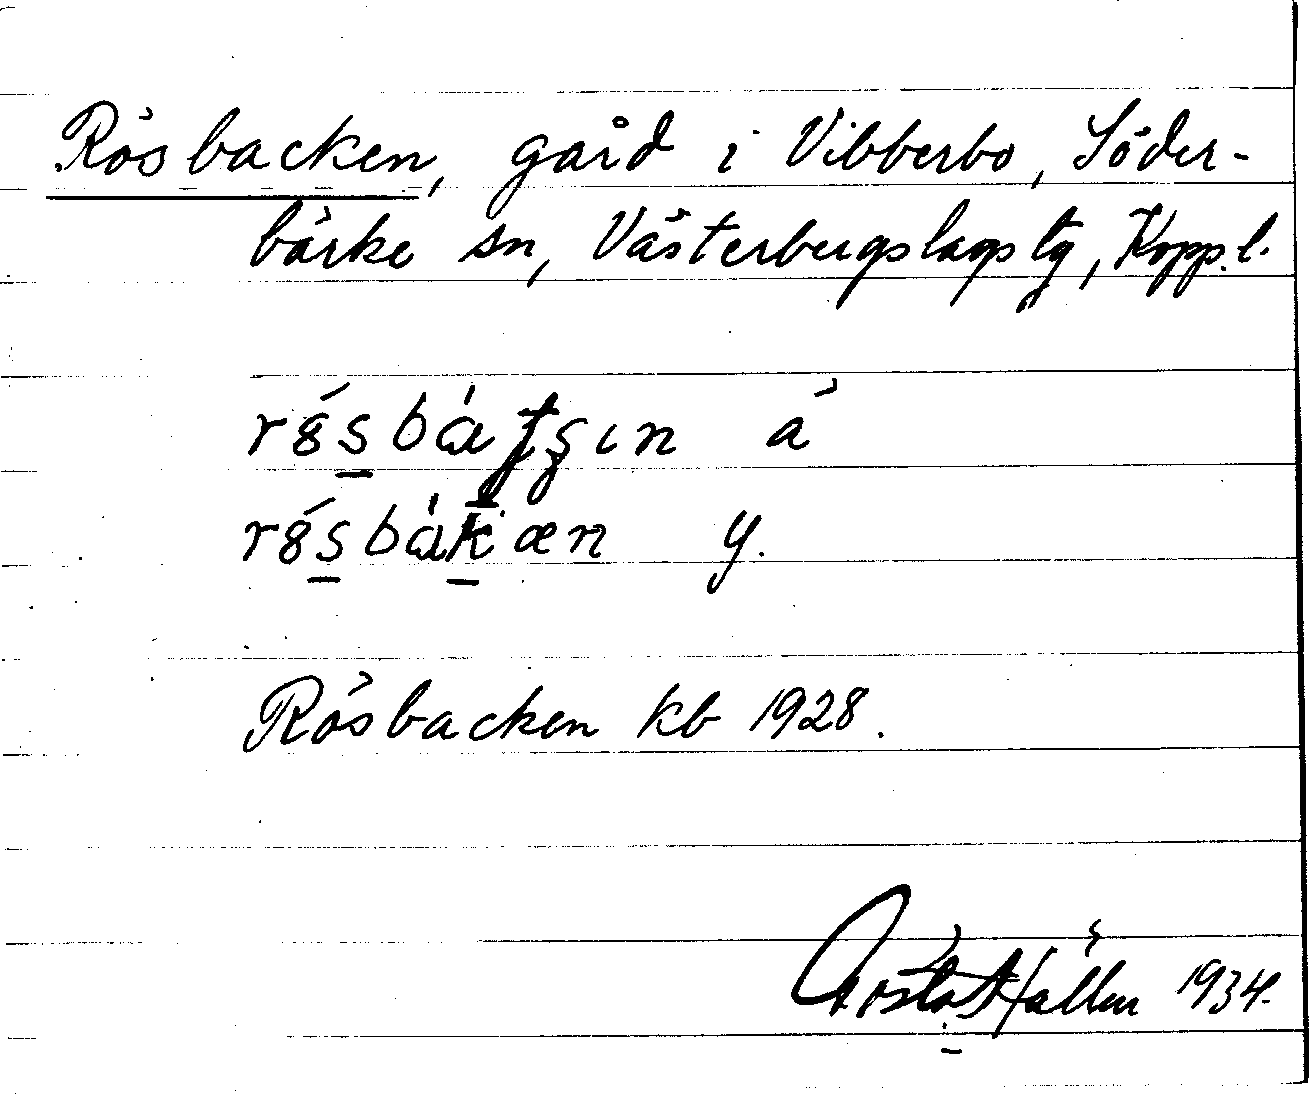 Rösbacken, gård i Vibberbo, Söder-
bärke sn, Västerbergslags tg, Kopp. l.
rȣ́s̠bàt̡ʂın ä
rȣ́s̠bàk̠æn y.
Rösbacken kb 1928.
Gösta Hallén 1934.